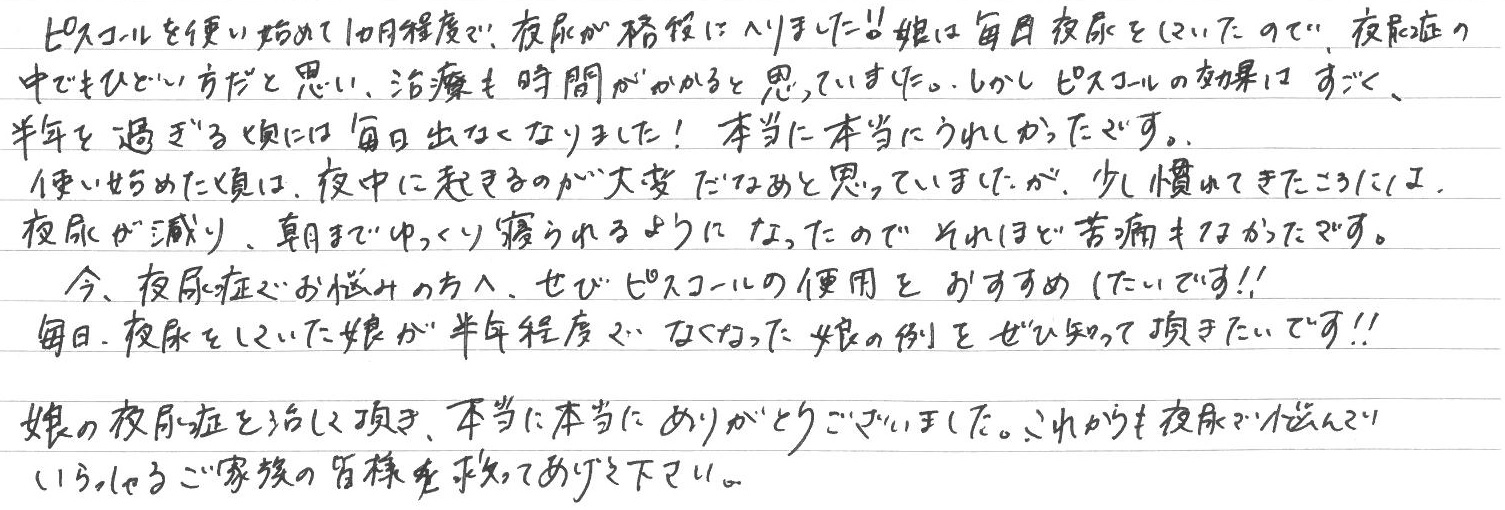 ピスコールを使い始めて1カ月程度で、夜尿が格段にへりました!!娘は毎日夜尿をしていたので、夜尿症の
中でもひどい方だと思い、治療も時間がかかると思っていました。しかしピスコールの効果はすごく、
半年を過ぎる頃には毎日出なくなりました!本当に本当にうれしかったです。
使い始めた頃は、夜中に起きるのが大変だなあと思っていましたが、少し慣れてきたころには、
夜尿が減り、朝までゆっくり寝られるようになったのでそれほど苦痛もなかったです。
今、夜尿症でお悩みの方へ、ぜひピスコールの使用をおすすめしたいです!!
毎日、夜尿をしていた娘が半年程度でなくなった娘の例をぜひ知って頂きたいです!!
娘の夜尿症を治して頂き、本当に本当にありがとうございました。これからも夜尿で悩んで
いらっしゃるご家族の皆様を救ってあげて下さい。